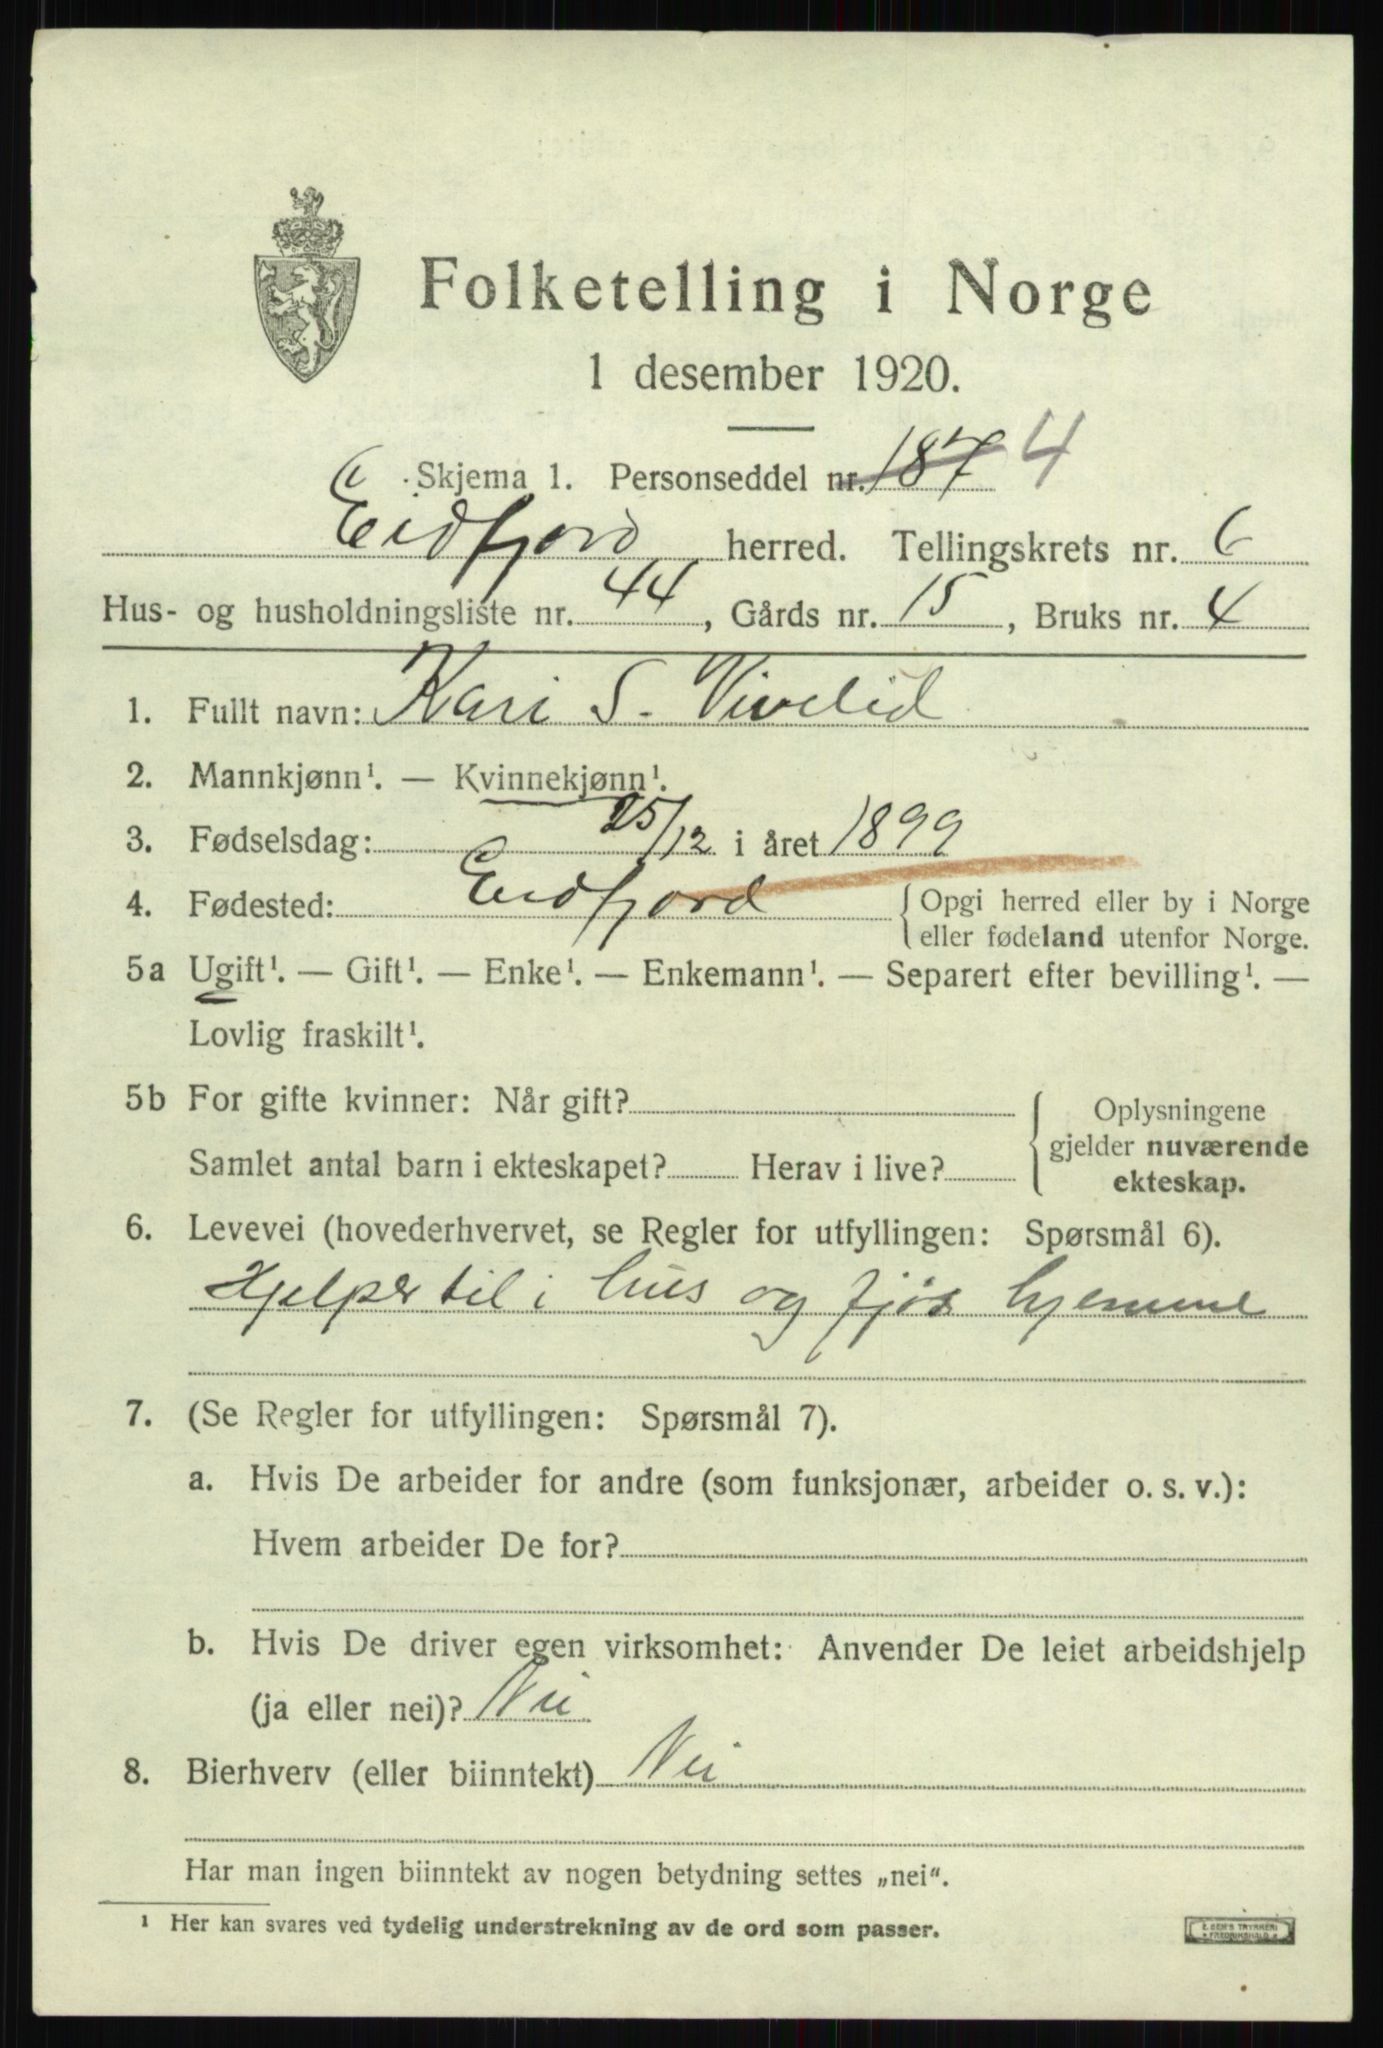 Folketelling i Norge
1 desember 1920.
Skjema 1. Personseddel nr. 187 4
Eidfjord herred. Tellingskrets nr. 6
Hus- og husholdningsliste nr. 44, Gårds nr. 15, Bruks nr. 4
1. Fullt navn: Kari S. Vivelid
2. Mannkjønn¹. — Kvinnekjønn¹.
3. Fødselsdag: 25/12 i året 1899
4. Fødested: Eidfjord { Opgi herred eller by i Norge
eller fødeland utenfor Norge.
5a Ugift¹. — Gift¹. — Enke¹. — Enkemann¹. — Separert efter bevilling¹. —
Lovlig fraskilt¹.
5b For gifte kvinner: Når gift?
Samlet antal barn i ekteskapet? Herav i live?
Oplysningene
gjelder nuværende
ekteskap.
6. Levevei (hovederhvervet, se Regler for utfyllingen: Spørsmål 6).
Hjelper til i hus og fjøs hjemme
7. (Se Regler for utfyllingen: Spørsmål 7).
a. Hvis De arbeider for andre (som funksjonær, arbeider o. s. v.):
Hvem arbeider De for?
b. Hvis De driver egen virksomhet: Anvender De leiet arbeidshjelp
(ja eller nei)? Nei
8. Bierhverv (eller biinntekt) Nei
Har man ingen biinntekt av nogen betydning settes „nei“.
¹ Her kan svares ved tydelig understrekning av de ord som passer.
E. SEM'S TRYKKERI
FREDRIKSHALD